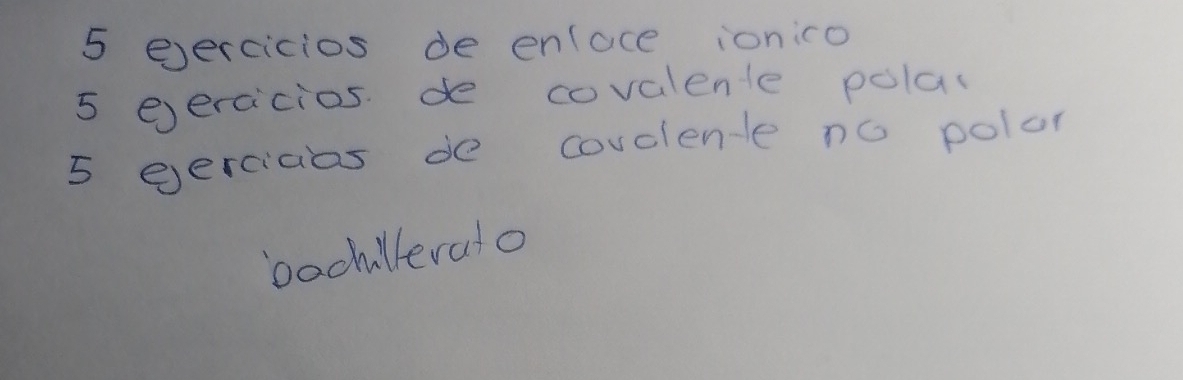 5 ejercicios de enlace ionico
5 ejercicios de covalente polar
5 ejercicios de covalente no polar
bachillerato